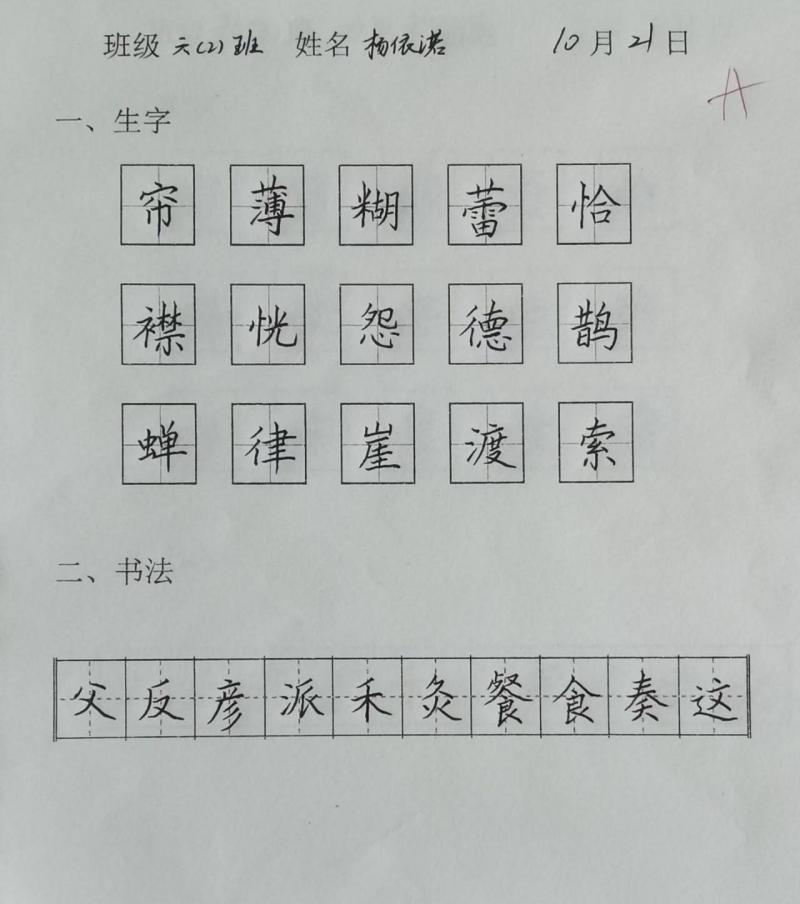 班级 六(2)班 姓名 杨依诺 10月21日
A
一、生字
帘 薄 糊 蕾 恰
襟 恍 怨 德 鹊
蝉 律 崖 渡 索
二、书法
父 反 彦 派 禾 灸 餐 食 奏 这